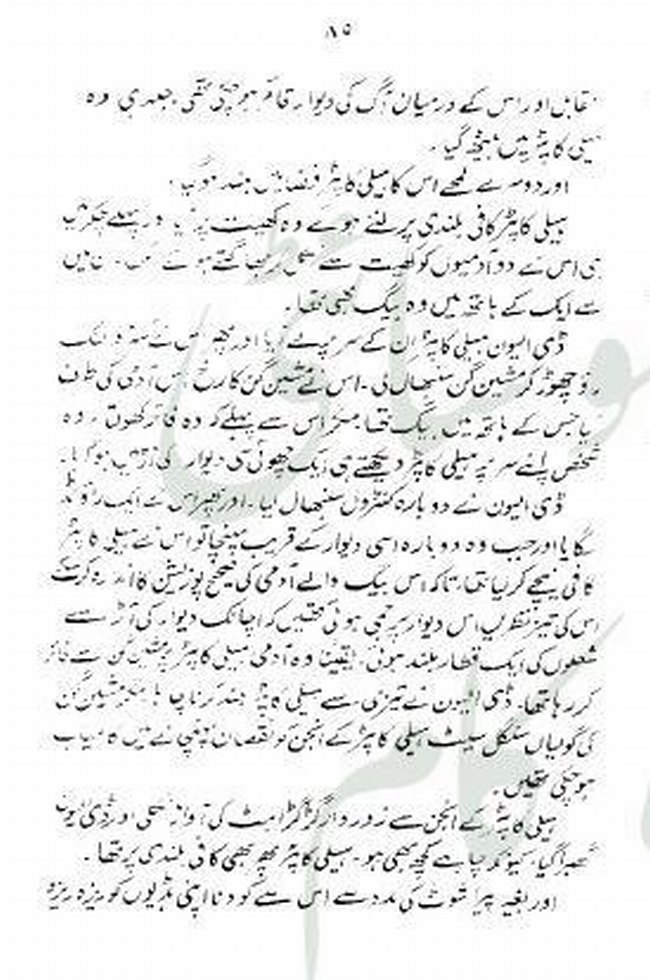 ۸۵
مقابل اور اس کے درمیان آگ کی دیوار قائم ہو چکی تھی جبھی وہ
ہیلی کاپٹر میں بیٹھ گیا۔
اور دوسرے لمحے اس کا ہیلی کاپٹر فضا میں بلند ہو گیا۔
ہیلی کاپٹر کافی بلندی پر لئے ہوئے وہ کھیت پر آیا اور پہلے چکر میں
ہی اس نے دو آدمیوں کو کھیت سے نکل کر بھاگتے ہوئے ان میں
سے ایک کے ہاتھ میں وہ بیگ بھی تھا۔
ڈی الیون ہیلی کاپٹر ان کے سر پر لے آیا اور پھر اس نے
چھوڑ کر مشین گن سنبھال لی۔ اس نے مشین گن کا رخ اس آدمی کی طرف
کیا جس کے ہاتھ میں بیگ تھا مگر اس سے پہلے کہ وہ فائر کھولتا۔ وہ
شخص اپنے سر پر ہیلی کاپٹر دیکھتے ہی ایک چھوٹی سی دیوار کی آڑ میں ہو گیا۔
ڈی الیون نے دوبارہ کنٹرول سنبھال لیا۔ اور پھر اس نے ایک راؤنڈ
لگایا اور جب وہ دوبارہ اسی دیوار کے قریب پہنچا تو اس نے ہیلی کاپٹر
کافی نیچے کر لیا تھا تاکہ اس بیگ والے آدمی کی صحیح پوزیشن کا اندازہ کر سکے
اس کی تیز نظریں اس دیوار پر جمی ہوئی تھیں کہ اچانک دیوار کی آڑ سے
شعلوں کی ایک قطار بلند ہوئی۔ یقیناً وہ آدمی ہیلی کاپٹر پر مشین گن سے فائر
کر رہا تھا۔ ڈی الیون نے تیزی سے ہیلی کاپٹر بلند کرنا چاہا مگر مشین گن
کی گولیاں سنگل سیٹ ہیلی کاپٹر کے انجن کو نقصان پہنچانے میں کامیاب
ہو چکی تھیں۔
ہیلی کاپٹر کے انجن سے زوردار گڑگڑاہٹ کی آواز نکلی اور ڈی الیون
گھبرا گیا۔ کیونکہ چاہے کچھ بھی ہو۔ ہیلی کاپٹر پھر بھی کافی بلندی پر تھا۔
اور بغیر پیراشوٹ کی مدد سے اس سے کودنا اپنی ہڈیوں کو ریزہ ریزہ